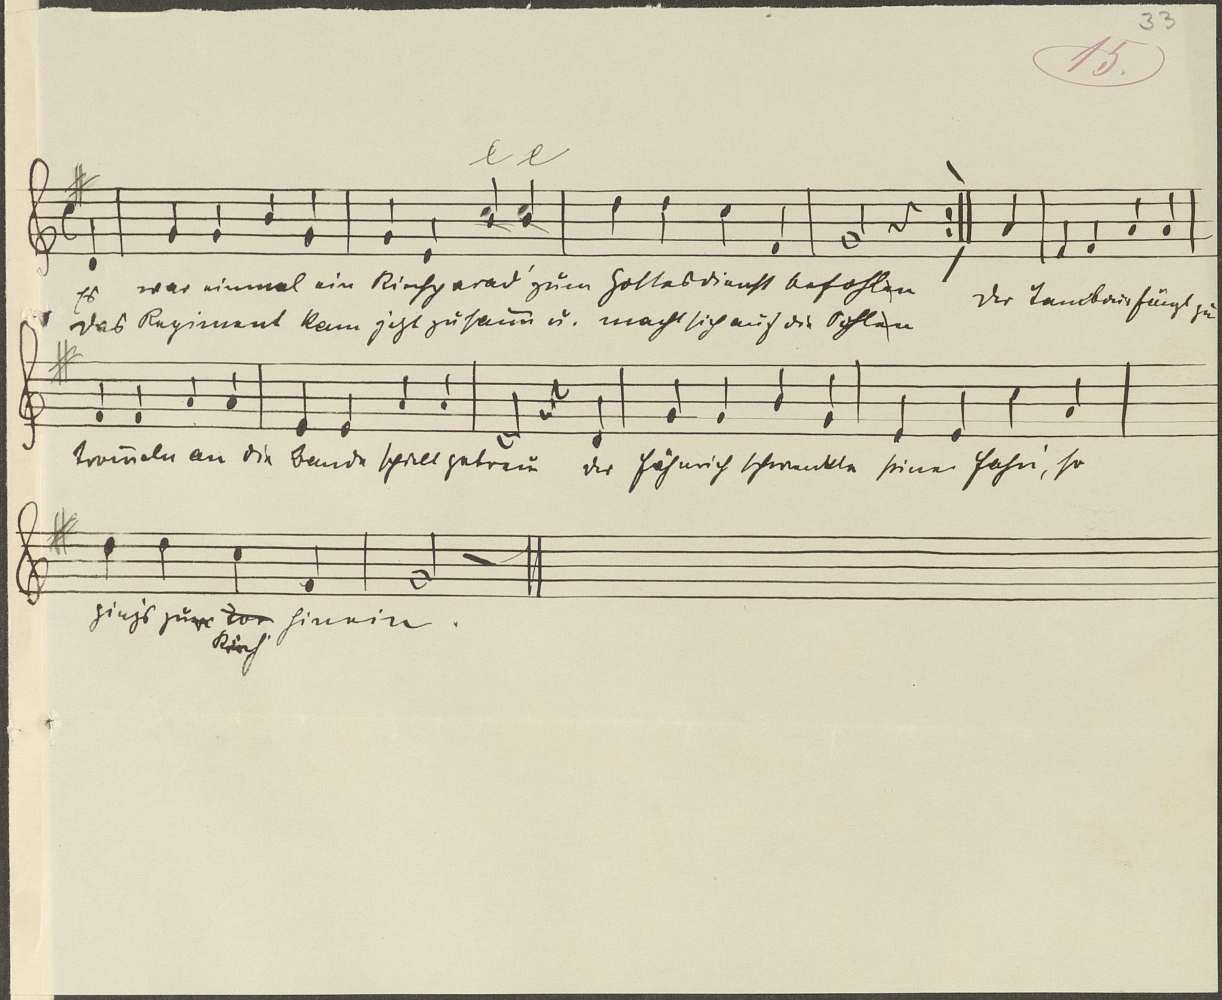 33
15.
e e
Es war einmal ein Kirchparad' zum Gottesdienst befohlen Der Tambour fängt zu
Das Regiment kam jezt zusam̅ u. macht sich auf die Sohlen
trom̅eln an die Bande spielt getreu der Fähnrich schwenkte seine Fahn', so
ging's zur Tor hinein.
Kirch'